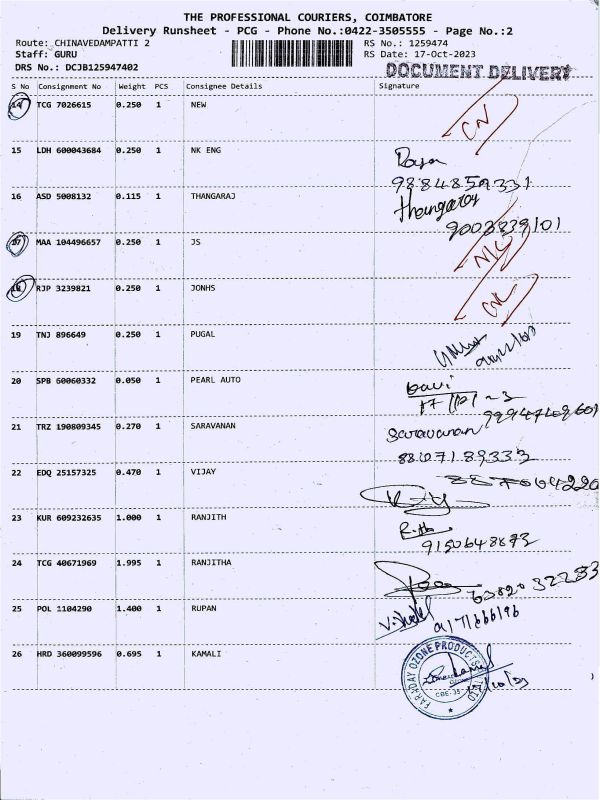 THE PROFESSIONAL COURIERS, COIMBATORE
Delivery Runsheet - PCG - Phone No.:0422-3505555 - Page No.:2
Route: CHINAVEDAMPATTI 2 RS No.: 1259474
Staff: GURU RS Date: 17-Oct-2023
DRS No.: DCJB125947402 DOCUMENT DELIVERY
S No Consignment No Weight PCS Consignee Details Signature
14 TCG 7026615 0.250 1 NEW
15 LDH 600043684 0.250 1 NK ENG
9884859331
16 ASD 5008132 0.115 1 THANGARAJ Thangaraj
9003839101
17 MAA 104496657 0.250 1 JS
18 RJP 3239821 0.250 1 JONHS
19 TNJ 896649 0.250 1 PUGAL
20 SPB 60060332 0.050 1 PEARL AUTO
21 TRZ 190809345 0.270 1 SARAVANAN Saravanan
22 EDQ 25157325 0.470 1 VIJAY
23 KUR 609232635 1.000 1 RANJITH
9150648873
24 TCG 40671969 1.995 1 RANJITHA
25 POL 1104290 1.400 1 RUPAN
26 HRD 360099596 0.695 1 KAMALI
FARADAY OZONE PRODUCTS
CBE-35